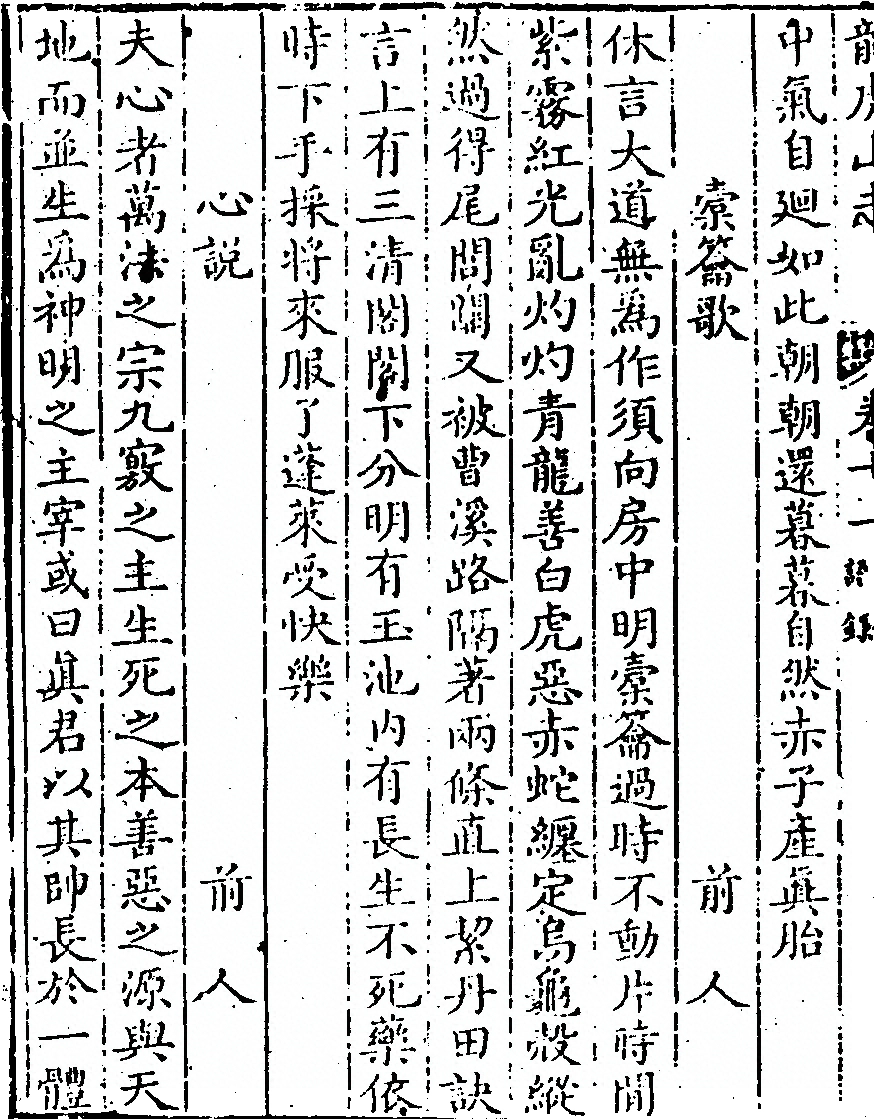 龍虎山志 卷十一 語錄
中氣自廻如此朝朝還暮暮自然赤子產眞胎
槖籥歌 前人
休言大道無爲作須向房中明槖籥過時不動片時間
紫霧紅光亂灼灼青龍善白虎惡赤蛇纏定烏龜殻縱
然過得尾閭關又被曹溪路隔著兩條直上絜丹田訣
言上有三清閣閣下分明有玉池内有長生不死藥依
時下手採將來服了蓬萊受快樂
心説 前人
夫心者萬法之宗九竅之主生死之本善惡之源與天
地而並生爲神明之主宰或曰眞君以其帥長於一體